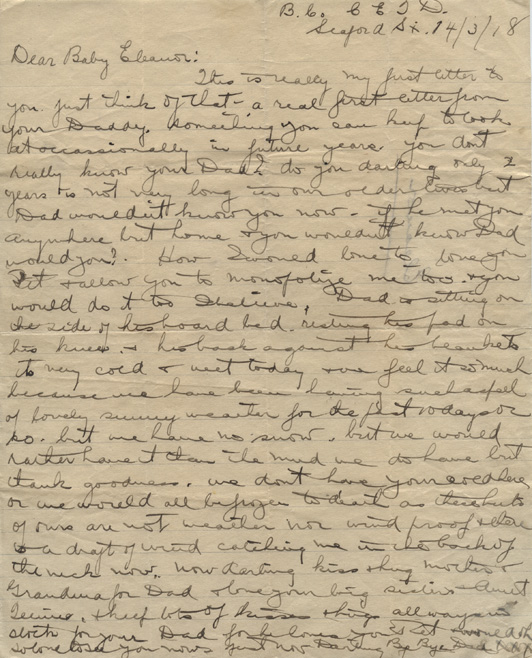 B.C. C E T D.
Seaford Sx. 14/3/18
Dear Baby Eleanor:
This is really my first letter to
you just think of that - a real first letter from
your Daddy. something you can keep to look
at occassionally in future years. you don't
really know your Dad? do you darling only 2
years is not very long in our older lives but
Dad wouldn't know you now - if he met you
anywhere but home & you wouldn't know Dad
would you? How I would love to love you
Pet & allow you to monopolize me too & you
would do it too I believe, Dad is sitting on
the side of his board bed, resting his pad on
his knee, & his back against his blankets
its very cold & wet today & we feel it so much
because we have been having such a spell
of lovely sunny weather for the last 10 days or
so. but we have no snow. but we would
rather have it than the mud we do have but
thank goodness. we don't have your cold here
or we would all be frozen to death as these huts
of ours are not weather nor wind proof & there
is a draft of wind catching me in the back of
the neck now. now darling kiss & hug mother &
Grandma for Dad & love your big sisters & Aunt
& keep lots of kisses & hugs all ways in
stock for your Dad for he loves you Pet & would
so love to you now just now Darling Bye Bye Dad XXX